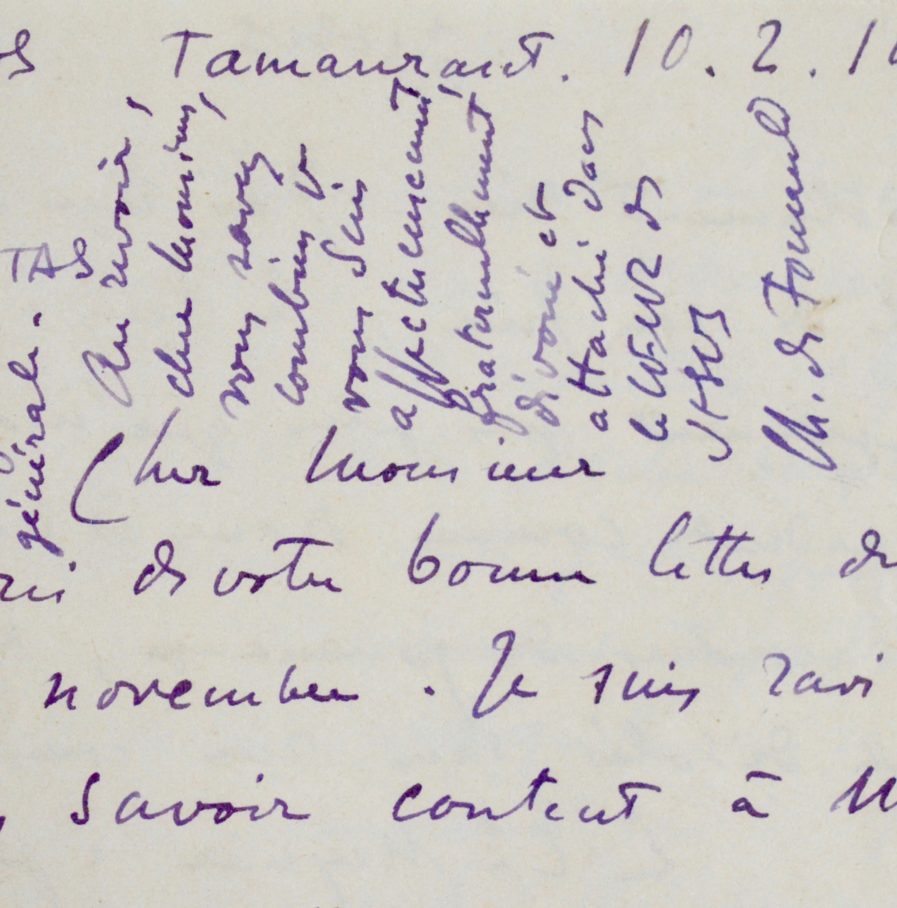 Tamanrasset. 10. 2. 1
Cher Monsieur
de votre bonne lettre du
november. Je suis ravi
savoir content à
TAS
générale.
Au revoir,
cher Monsieur,
vous savez
combien je
vous suis
affectueusement
fraternellement
dévoué et
attaché dans
le CŒUR de
JESUS
Ch. de Foucauld